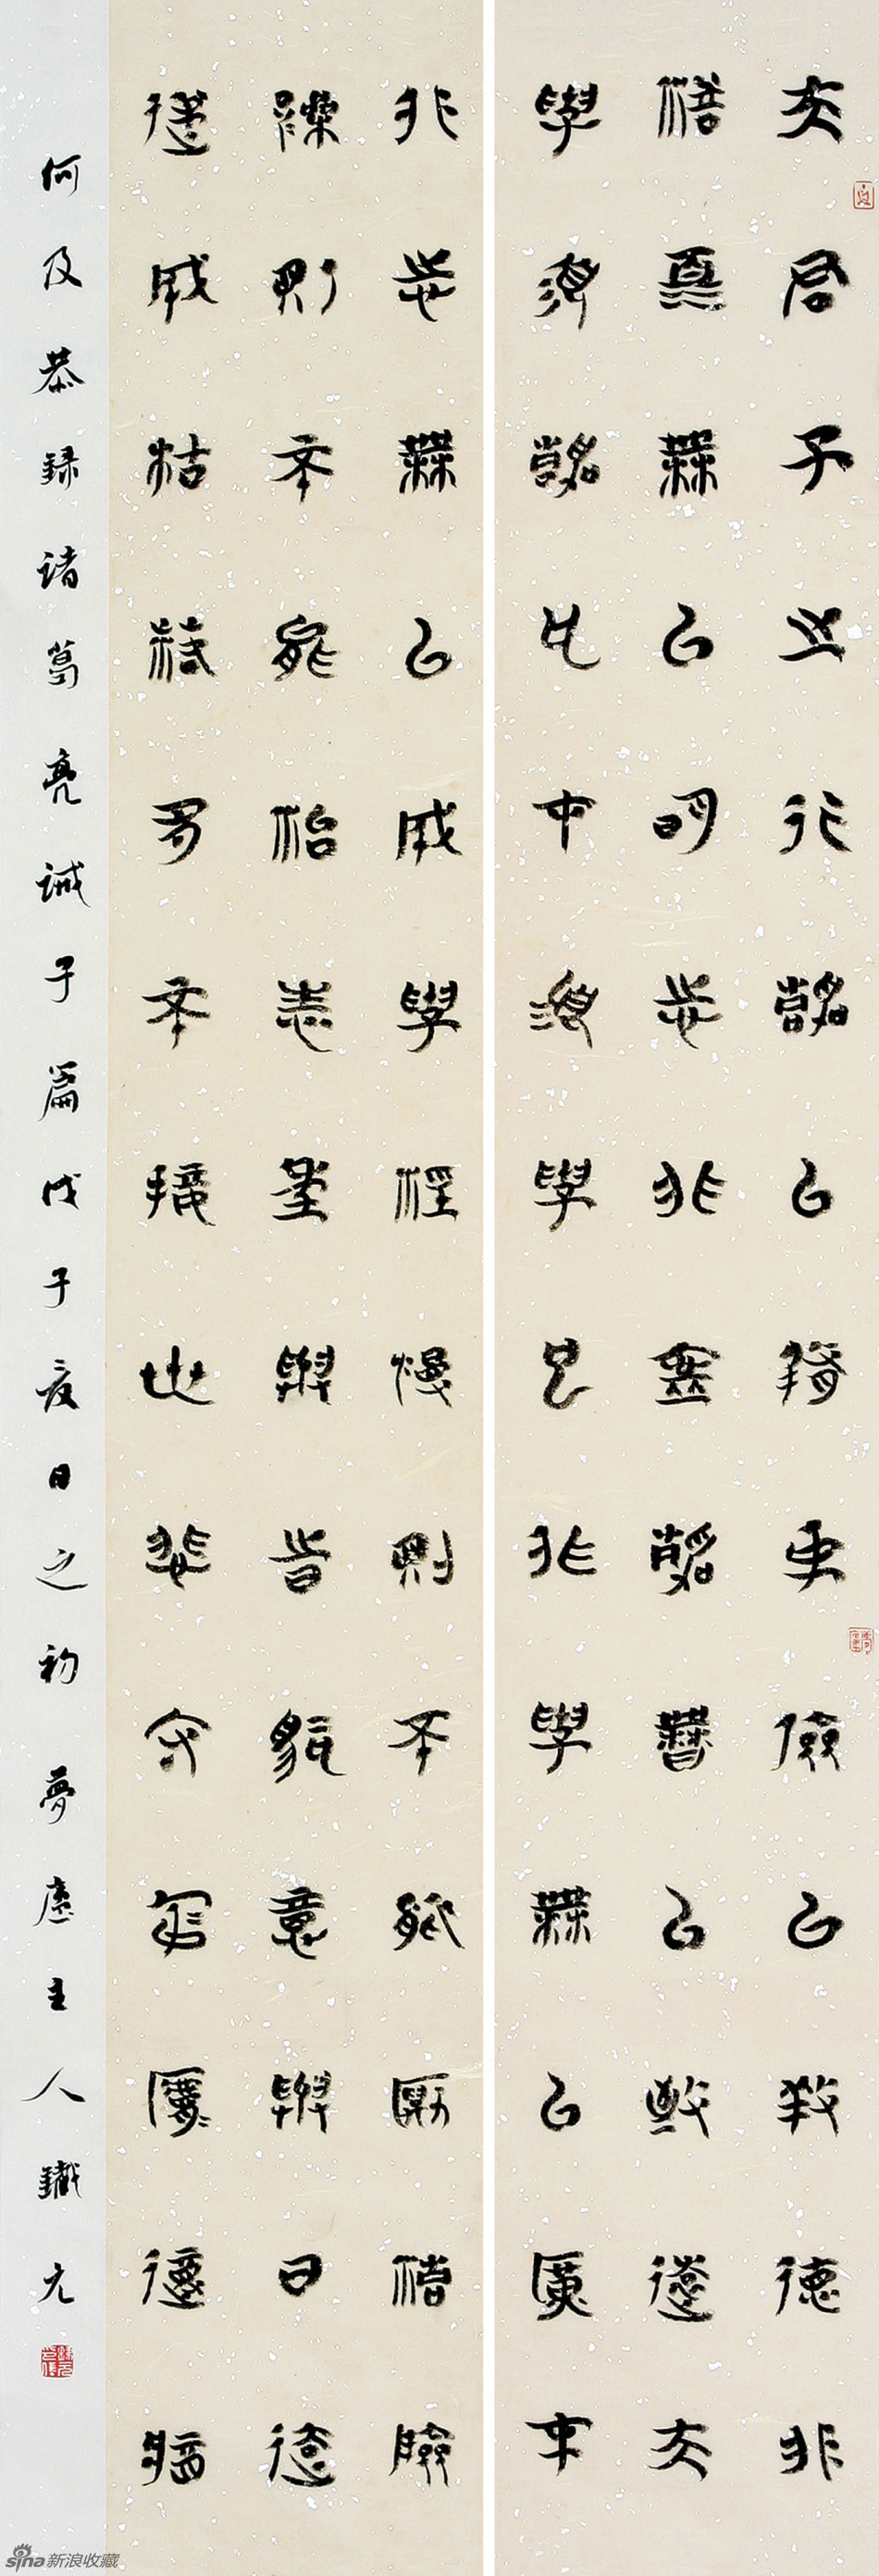 夫君子之行靜以脩身儉以養德非
澹泊無以明志非寧靜無以致遠夫
學須靜也才須學也非學無以廣才
非志無以成學淫慢則不能勵精險
躁則不能治性年與時馳意與日去
遂成枯落多不接世悲守窮廬將復
何及恭録諸葛亮誡子篇戊子夏日之初夢廬主人鐵元
sina新浪收藏